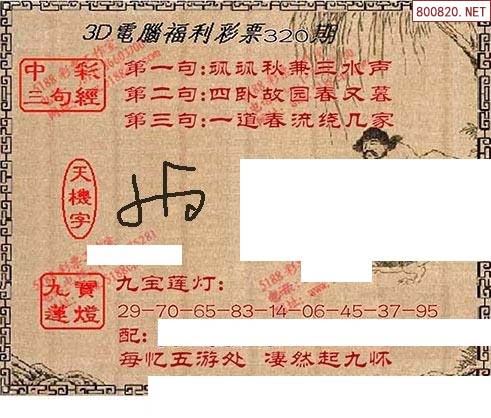 800820.NET
3D電腦福利彩票320期
中彩
三句經
第一句:讽讽秋兼三水声
第二句:四卧故园春又暮
第三句:一道春流绕几家
天機字
九寶
蓮燈
九宝莲灯:
29-70-65-83-14-06-45-37-95
配:
每忆五游处 凄然起九怀